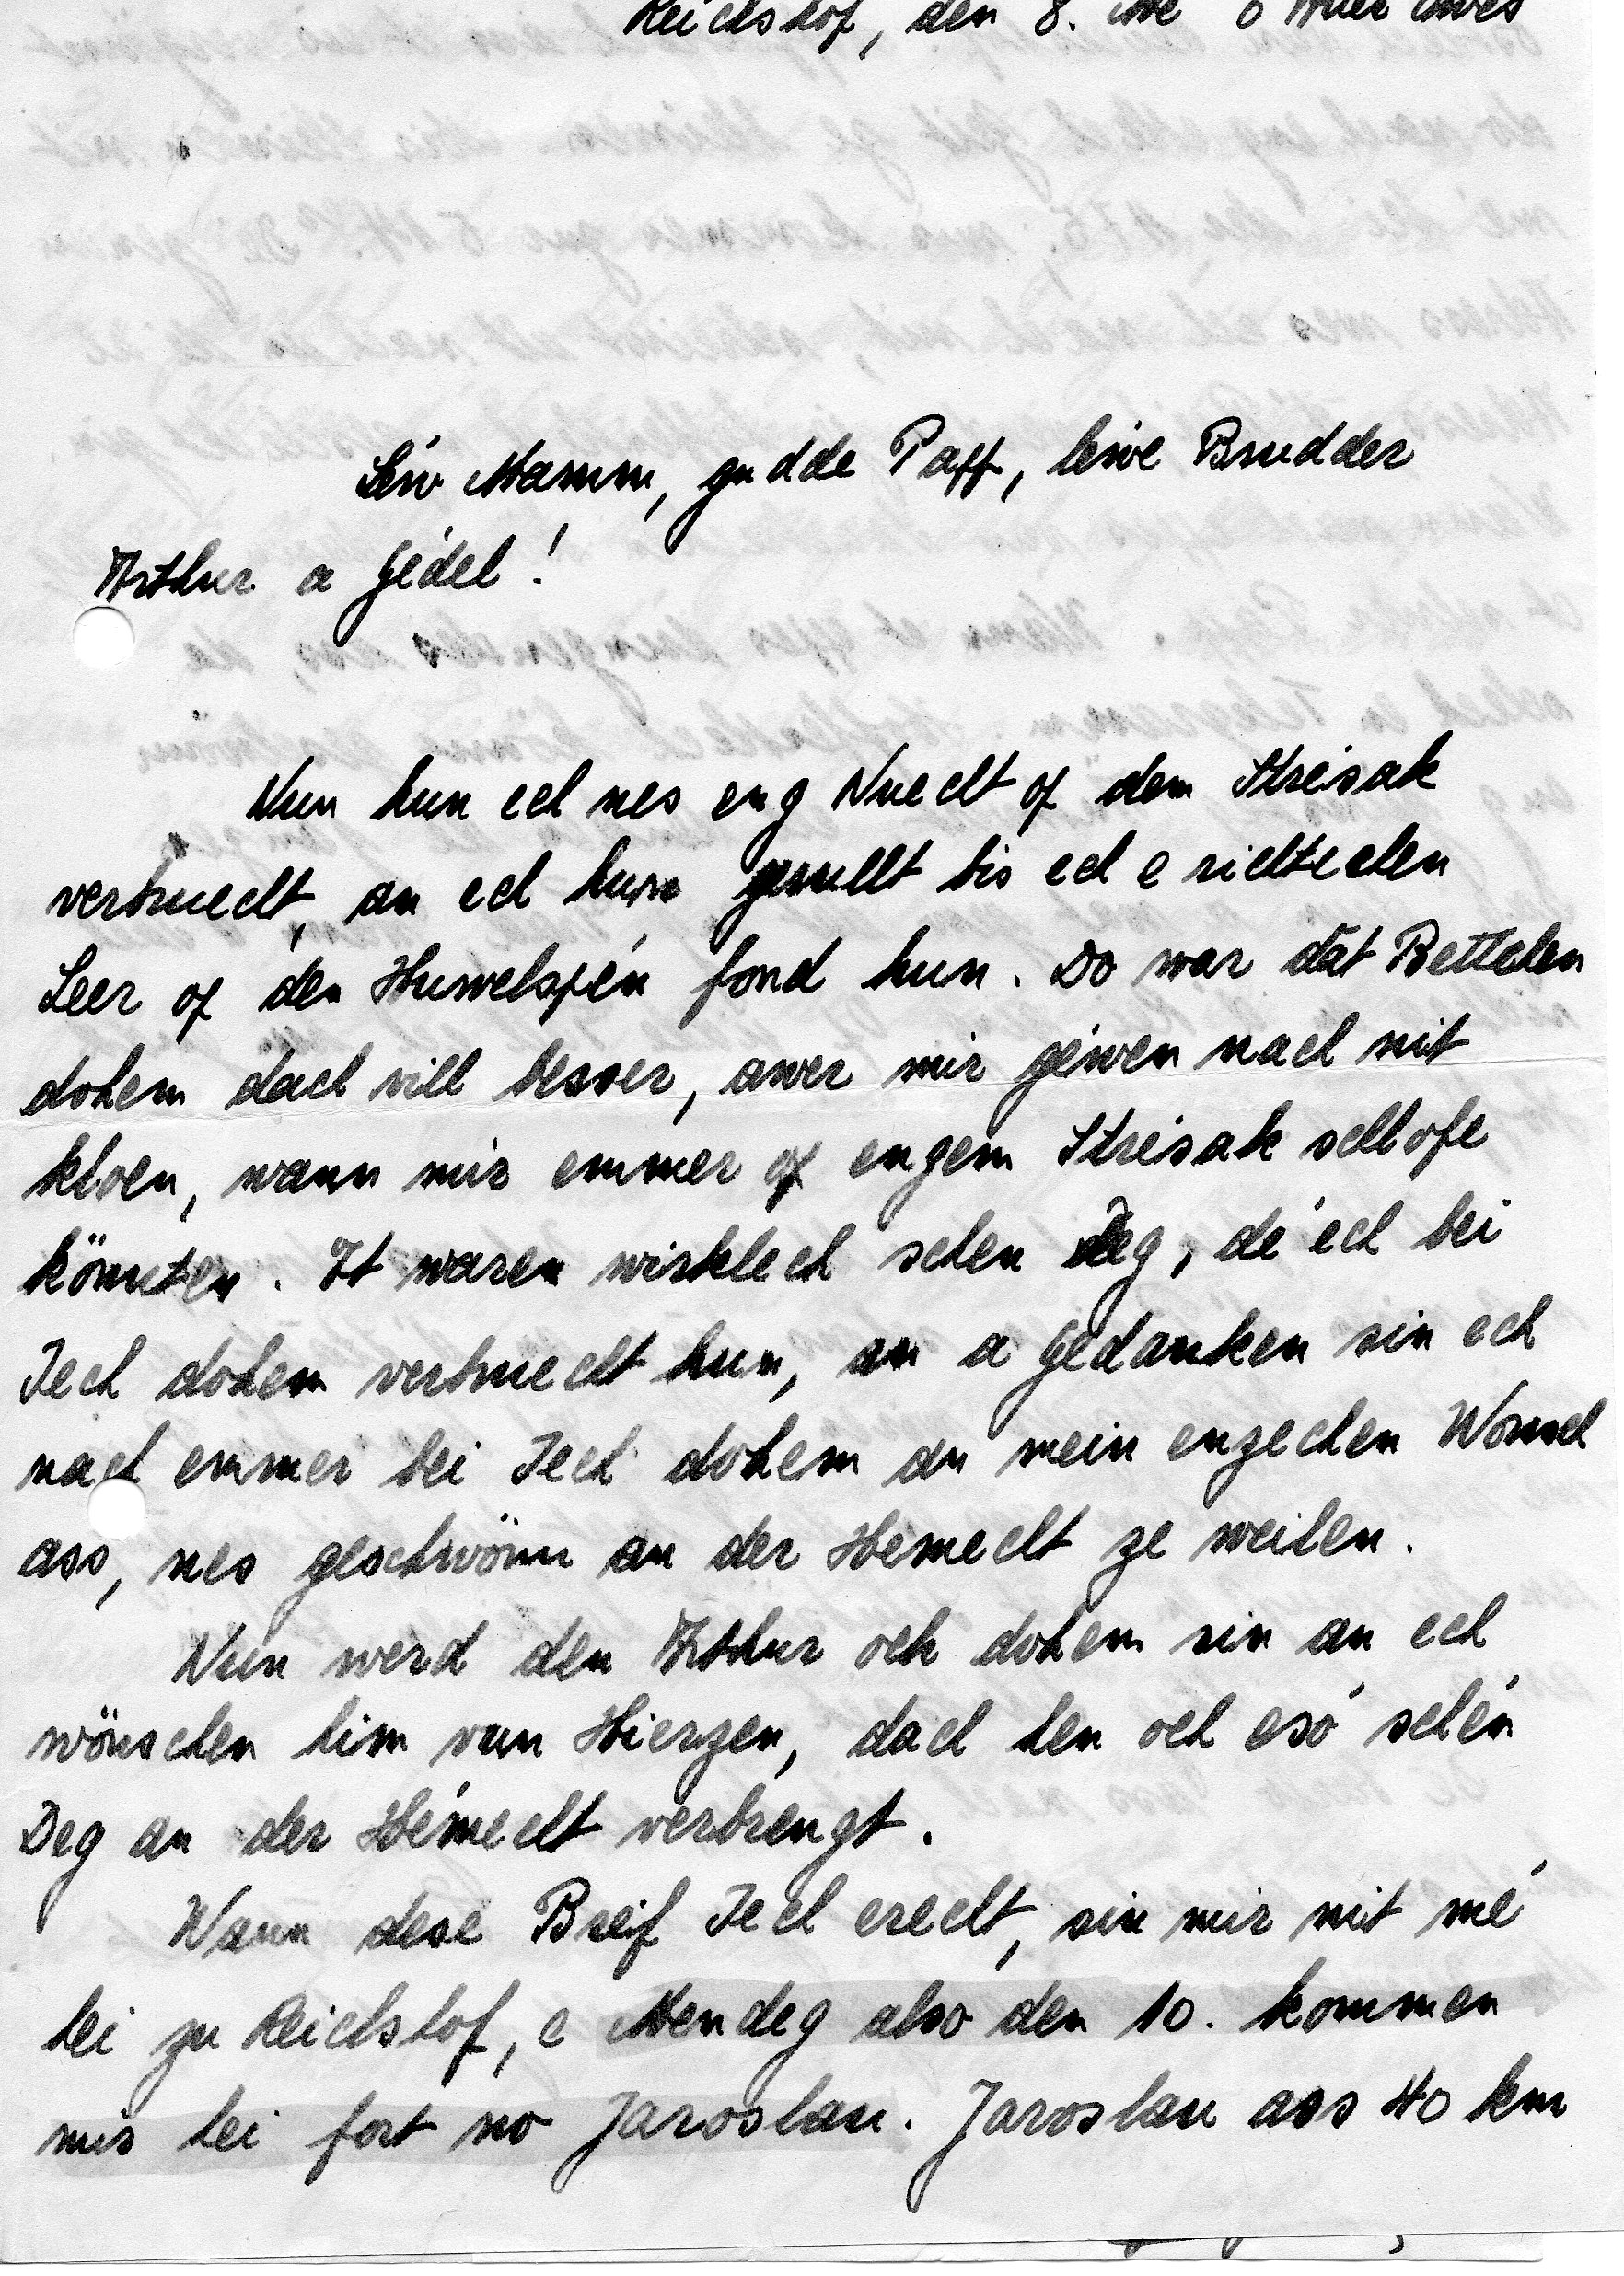 Reichshof, den 8. Mé 6 Auer Mues
Léiw Mamm, gudde Papp, léiwe Brudder
Arthur a Gédel!
Nun hun ech nes eng Nuecht of dem Strésak
verbruecht, an ech hun gerullt bis ech e richtechen
Leer of den Huwelspén fond hun. Do war dât Bettchen
dohem dach vill besser, awer mir géwen nach nit
kloen, wann mir emmer of engem Strésak schlofe
könnten. It waren wirklech schen Deg, dé ech bei
Iech dohem verbruecht hun, an a Gedanken sin ech
nach emmer bei Iech dohem an mein enzechen Wonsch
ass, nes geschwönn an der Hémecht ze weilen.
Nun werd den Arthur och dohem sin an ech
wönschen him vun Hierzen, dach hen och esó schén
Deg an der Hémecht verbrengt.
Wann dese Bréif Iech erecht, sin mir nit mé
hei zu Reichshof, e Mendeg also den 10. kommen
mir hei fort no Jaroslau. Jaroslau ass 40 km